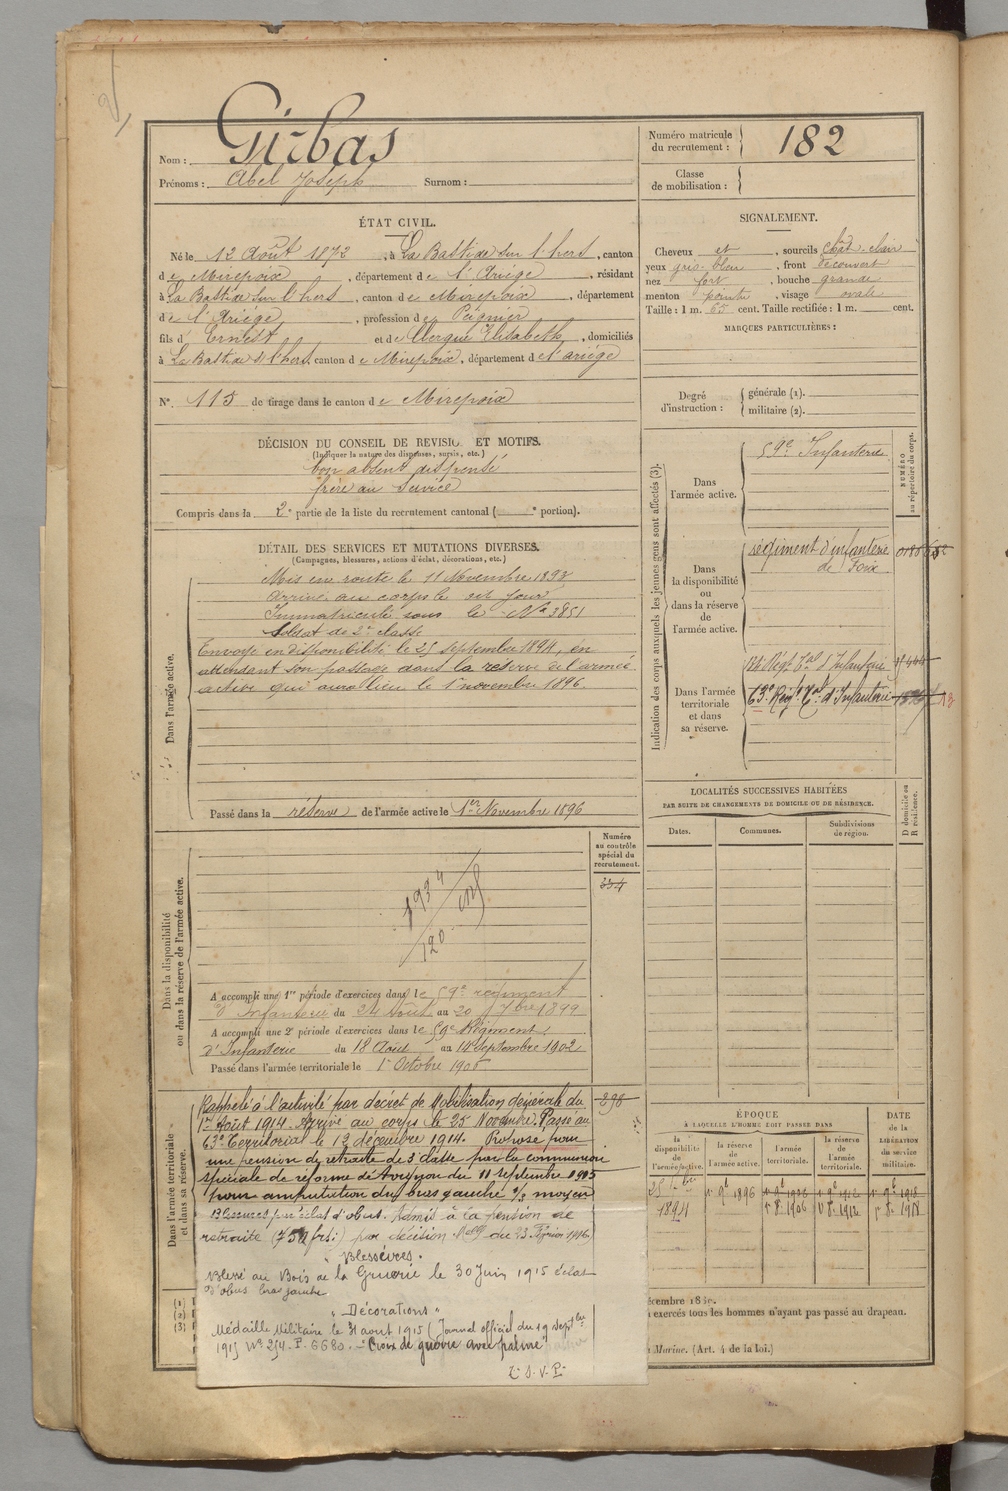 Nom : Girbas
Prénoms : Abel Joseph Surnom :
Numéro matricule du recrutement : 182
Classe de mobilisation :
ÉTAT CIVIL.
Né le 12 Août 1872, à La Bastide sur l'hers, canton
de Mirepoix, département de l'Ariège, résidant
à La Bastide sur l'hers, canton de Mirepoix, département
de l'Ariège, profession de Peignier
fils d'Ernest et de Clergue Elisabeth, domiciliés
à La Bastide s. l'hers, canton de Mirepoix, département de l'ariège
N° 115 de tirage dans le canton de Mirepoix
SIGNALEMENT.
Cheveux et, sourcils chât. clair
yeux gris bleu, front découvert
nez fort, bouche grande
menton pointu, visage ovale
Taille : 1 m. 65 cent. Taille rectifiée : 1 m. cent.
MARQUES PARTICULIÈRES :
Degré d'instruction : générale (1).
militaire (2).
DÉCISION DU CONSEIL DE REVISIO ET MOTIFS.
(Indiquer la nature des dispenses, sursis, etc.)
bon absent dispensé
frère au service
Compris dans la 2e partie de la liste du recrutement cantonal ( e portion).
DÉTAIL DES SERVICES ET MUTATIONS DIVERSES.
(Campagnes, blessures, actions d'éclat, décorations, etc.)
Dans l'armée active.
Mis en route le 11 Novembre 1893
Arrivé au corps le dit jour
Immatriculé sous le N° 3851
Soldat de 2e classe
Envoyé en disponibilité le 25 septembre 1894, en
attendant son passage dans la réserve de l'armée
active qui aura lieu le 1er novembre 1896.
Passé dans la réserve de l'armée active le 1er Novembre 1896
Indication des corps auxquels les jeunes gens sont affectés (3).
NUMÉRO au répertoire du corps.
Dans l'armée active.
59e Infanterie
Dans la disponibilité ou dans la réserve de l'armée active.
régiment d'infanterie
de Foix
Dans l'armée territoriale et dans sa réserve.
Régt Tal d'Infanterie
63e Régt Tal d'Infanterie
LOCALITÉS SUCCESSIVES HABITÉES
PAR SUITE DE CHANGEMENTS DE DOMICILE OU DE RÉSIDENCE.
Dates. Communes. Subdivisions de région. D domicile ou R résidence.
Dans la disponibilité ou dans la réserve de l'armée active.
Numéro au contrôle spécial du recrutement.
334
1934
120
A accompli une 1re période d'exercices dans le 59e régiment
d'Infanterie du 24 Août au 20 7bre 1899
A accompli une 2e période d'exercices dans le 59e Régiment
d'Infanterie du 18 Août au 14 Septembre 1902
Passé dans l'armée territoriale le 1er Octobre 1906
Dans l'armée territoriale et dans sa réserve.
398
Rappelé à l'activité par décret de Mobilisation générale du
1er Août 1914. Arrivé au corps le 25 Novembre. Passé au
63e Territorial le 12 décembre 1914. Proposé pour
une pension de retraite de 3 classe par la commission
spéciale de réforme d'Avignon du 11 septembre 1915
pour amputation du bras gauche 1/3 moyen
Blessures par éclat d'obus. Admis à la pension de
retraite (75 frs) par décision Melle du 23 Février 1916
"Blessures.
Blessé au Bois de la Gruerie le 30 Juin 1915 éclat
d'obus bras gauche
"Décorations"
Médaille Militaire le 31 aout 1915 (Journal officiel du 19 Septbre
1915 N° 254. P. 6680. Croix de guerre avec palme
T. S. V. P.
ÉPOQUE
À LAQUELLE L'HOMME DOIT PASSER DANS
la disponibilité de l'armée active. la réserve de l'armée active. l'armée territoriale. la réserve de l'armée territoriale.
DATE de la LIBÉRATION du service militaire.
25 7bre 1894 1er 9bre 1896 1er 9bre 1906 1er 9bre 1912 1er 9bre 1918
1er 8bre 1906 1er 8bre 1912 1er 8bre 1918
(1)
(2)
(3)
exercés tous les hommes n'ayant pas passé au drapeau.
Marine. (Art. 4 de la loi.)